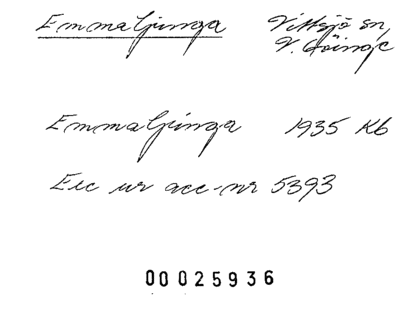 Emmaljunga Vittsjö sn,
V. Göinge
Emmaljunga 1935 Kb
Exc ur acc-nr 5393
00025936